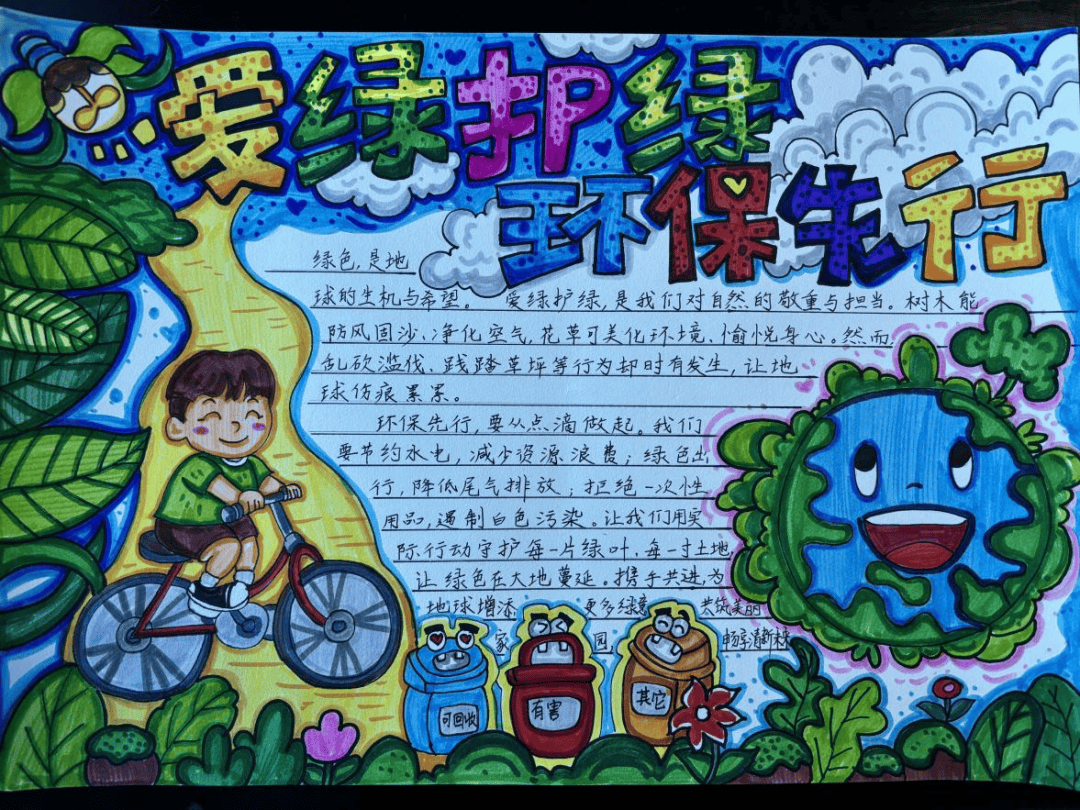 爱绿护绿
环保先行
绿色,是地
球的生机与希望。 爱绿护绿,是我们对自然的敬重与担当。树木能
防风固沙、净化空气,花草可美化环境、愉悦身心。然而
乱砍滥伐、践踏草坪等行为却时有发生,让地
球伤痕累累。
环保先行,要从点滴做起。我们
要节约水电,减少资源浪费;绿色出
行,降低尾气排放;拒绝一次性
用品,遏制白色污染。让我们用实
际行动守护每一片绿叶、每一寸土地,
让绿色在大地蔓延。携手共进,为
地球增添 更多绿意 共筑美丽
家 园 畅享清新未
可回收 有害 其它